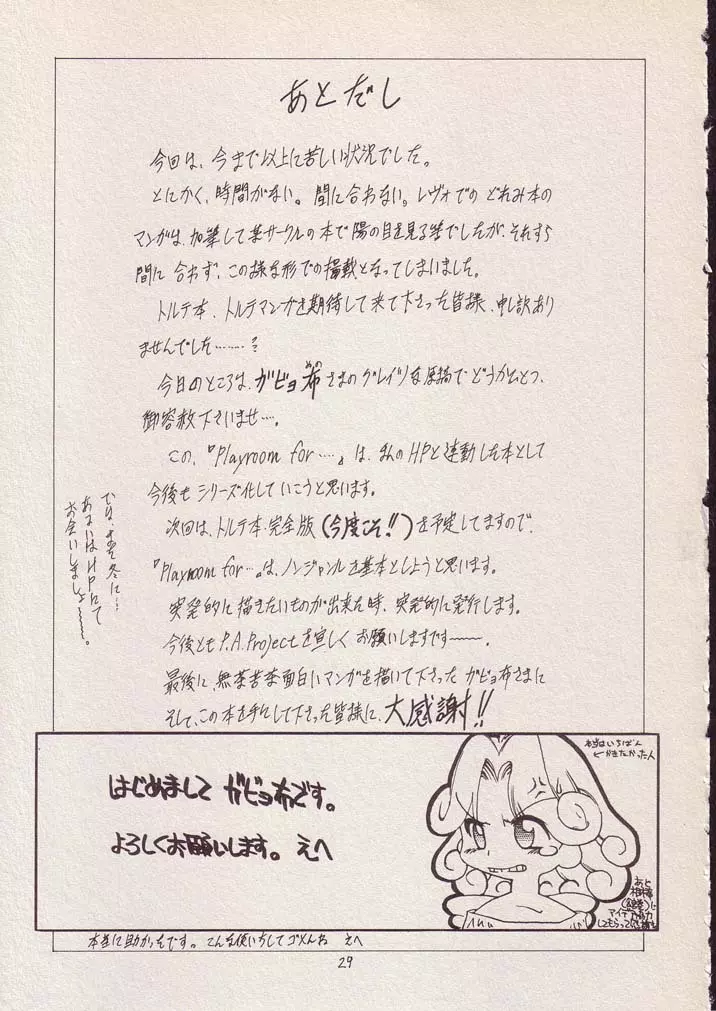 あとだし
今回は、今まで以上に苦しい状況でした。
とにかく、時間がない。間に合わない。レヴォでの どれみ本の
マンガは、加筆して某サークルの本で陽の目を見る筈でしたが、それすら
間に合わず、この様な形での掲載となってしまいました。
トルテ本、トルテマンガを期待して来て下さった皆様、申し訳あり
ませんでした………?
今日のところは、ガビョ布さまのグレイツな原稿でどうかひとつ、
御容赦下さいませ…。
この、『Playroom for…』は、私のHPと連動した本として
今後もシリーズ化していこうと思います。
次回は、トルテ本完全版(今度こそ!!)を予定してますので、
『Playroom for…』は、ノンジャンルを基本としようと思います。
突発的に描きたいものが出来た時、突発的に発行します。
今後ともP.A.Projectを宜しくお願いしますです〜〜。
最後に、無茶苦茶面白いマンガを描いて下さった ガビョ布さまに
そして、この本を手にして下さった皆様に、大感謝!!
では、また冬に…
あるいはHPにて
お会いしましょ〜〜。
はじめまして ガビョ布です。
よろしくお願いします。 えへ
本当はいちばん
←かきたかった人
あと
相棒
アイデア
してもらって
本当に助かったです。こんな使いちしてゴメンね えへ
29